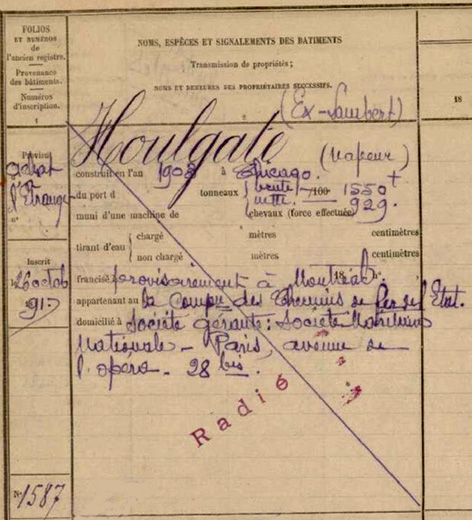 FOLIOS
ET NUMÉROS
de
l'ancien registre.
Provenance
des bâtiments.
Numéros
d'inscription.
1
NOMS, ESPÈCES ET SIGNALEMENTS DES BATIMENTS
Transmission de propriétés;
NOMS ET DEMEURES DES PROPRIÉTAIRES SUCCESSIFS.
18
(Ex-Lambert)
Houlgate
(vapeur)
Provint
achat
l'Etranger
n°
construit en l'an 1903 à Chicago.
du port d tonneaux brute /100 1550 +
nette. 929.
muni d'une machine de chevaux (force effectuée)
tirant d'eau chargé mètres centimètres
non chargé mètres centimètres
Inscrit
26 octob
francisé provisoirement à Montréal 18 N°
appartenant au la Compie des Chemins de fer de l'Etat.
domicilié à Société gérante: Société Maritime
Nationale - Paris, avenue de
l'opéra - 28 bis.
Radié
N° 1587